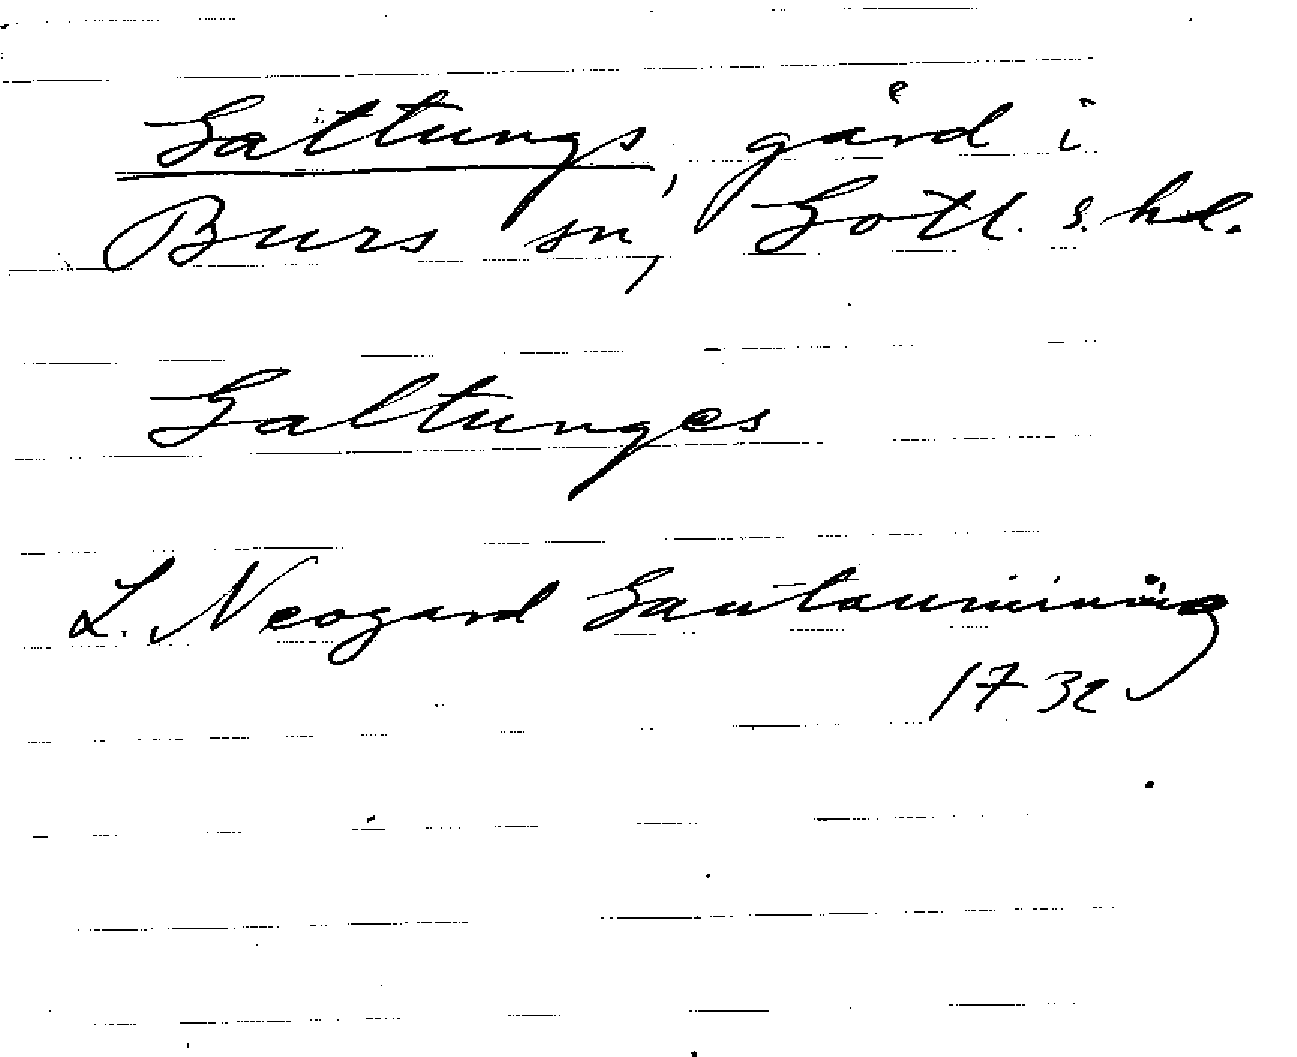 Galtungs, gård i
Burs sn, Gotl. s. hd.
Galtunges
L. Neogard Gautauminning
1732